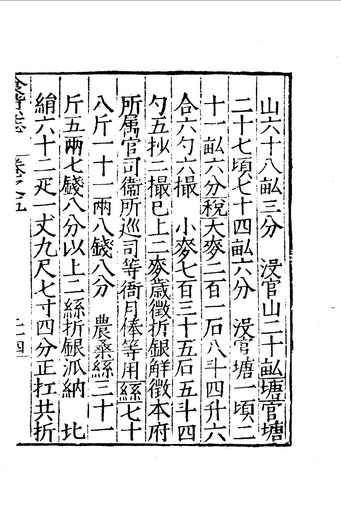 山六十八畝三分　没官山二十畝塘官塘
二十七頃七十四畝六分　没官塘一頃二
十一畝六分稅大麥二百二石八斗四升六
合六勺六撮　小麥七百三十五石五斗四
勺五抄二撮已上二麥歲徵折銀解徵本府
所属官司衞所巡司等衙月俸等用絲七十
八斤一十一兩八錢八分　農桑絲三十一
斤五兩七錢八分以上二絲折銀派納　比
絹六十二疋一丈九尺七寸四分正扛共折
卷之五
二十四